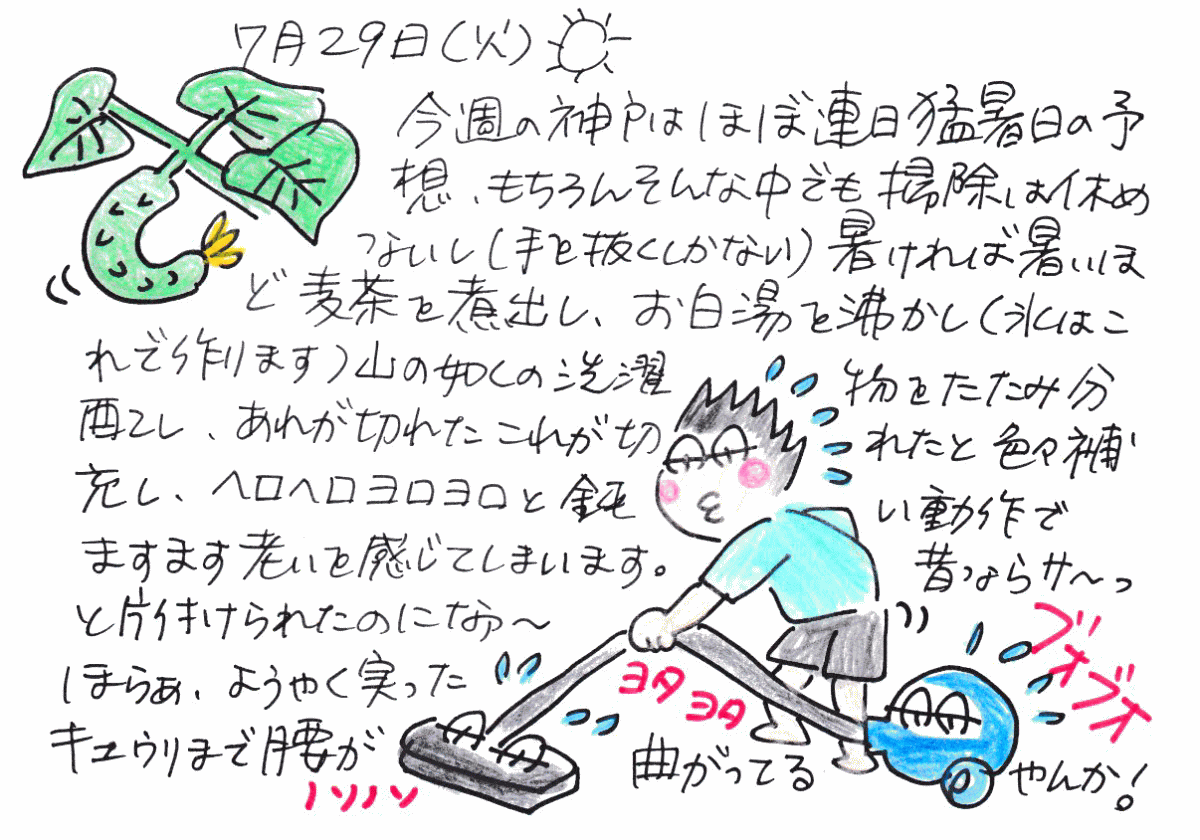 7月29日(火)
今週の神戸はほぼ連日猛暑日の予
想、もちろんそんな中でも掃除は休め
ないし(手を抜くしかない)暑ければ暑いほ
ど麦茶を煮出し、お白湯を沸かし(氷はこ
れで作ります)山の如くの洗濯物をたたみ分
配し、あれが切れたこれが切れたと色々補
充し、ヘロヘロヨロヨロと鈍い動作で
ますます老いを感じてしまいます。昔ならサ〜っ
と片付けられたのになあ〜
ほらぁ、ようやく実った
キュウリまで腰が曲がってるやんか!
ヨタヨタ
ブオブオ